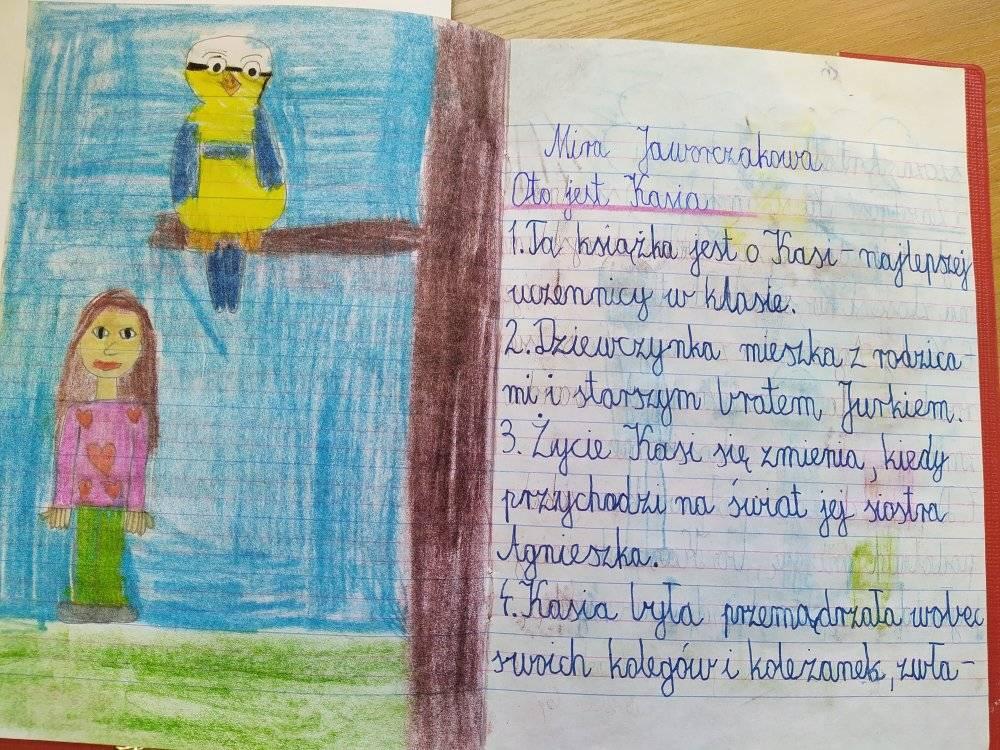 Mira Jaworczakowa
Oto jest Kasia
1. Ta książka jest o Kasi - najlepszej
uczennicy w klasie.
2. Dziewczynka mieszka z rodzica-
mi i starszym bratem Jurkiem.
3. Życie Kasi się zmienia, kiedy
przychodzi na świat jej siostra
Agnieszka.
4. Kasia była przemądrzała wobec
swoich kolegów i koleżanek, zwła-